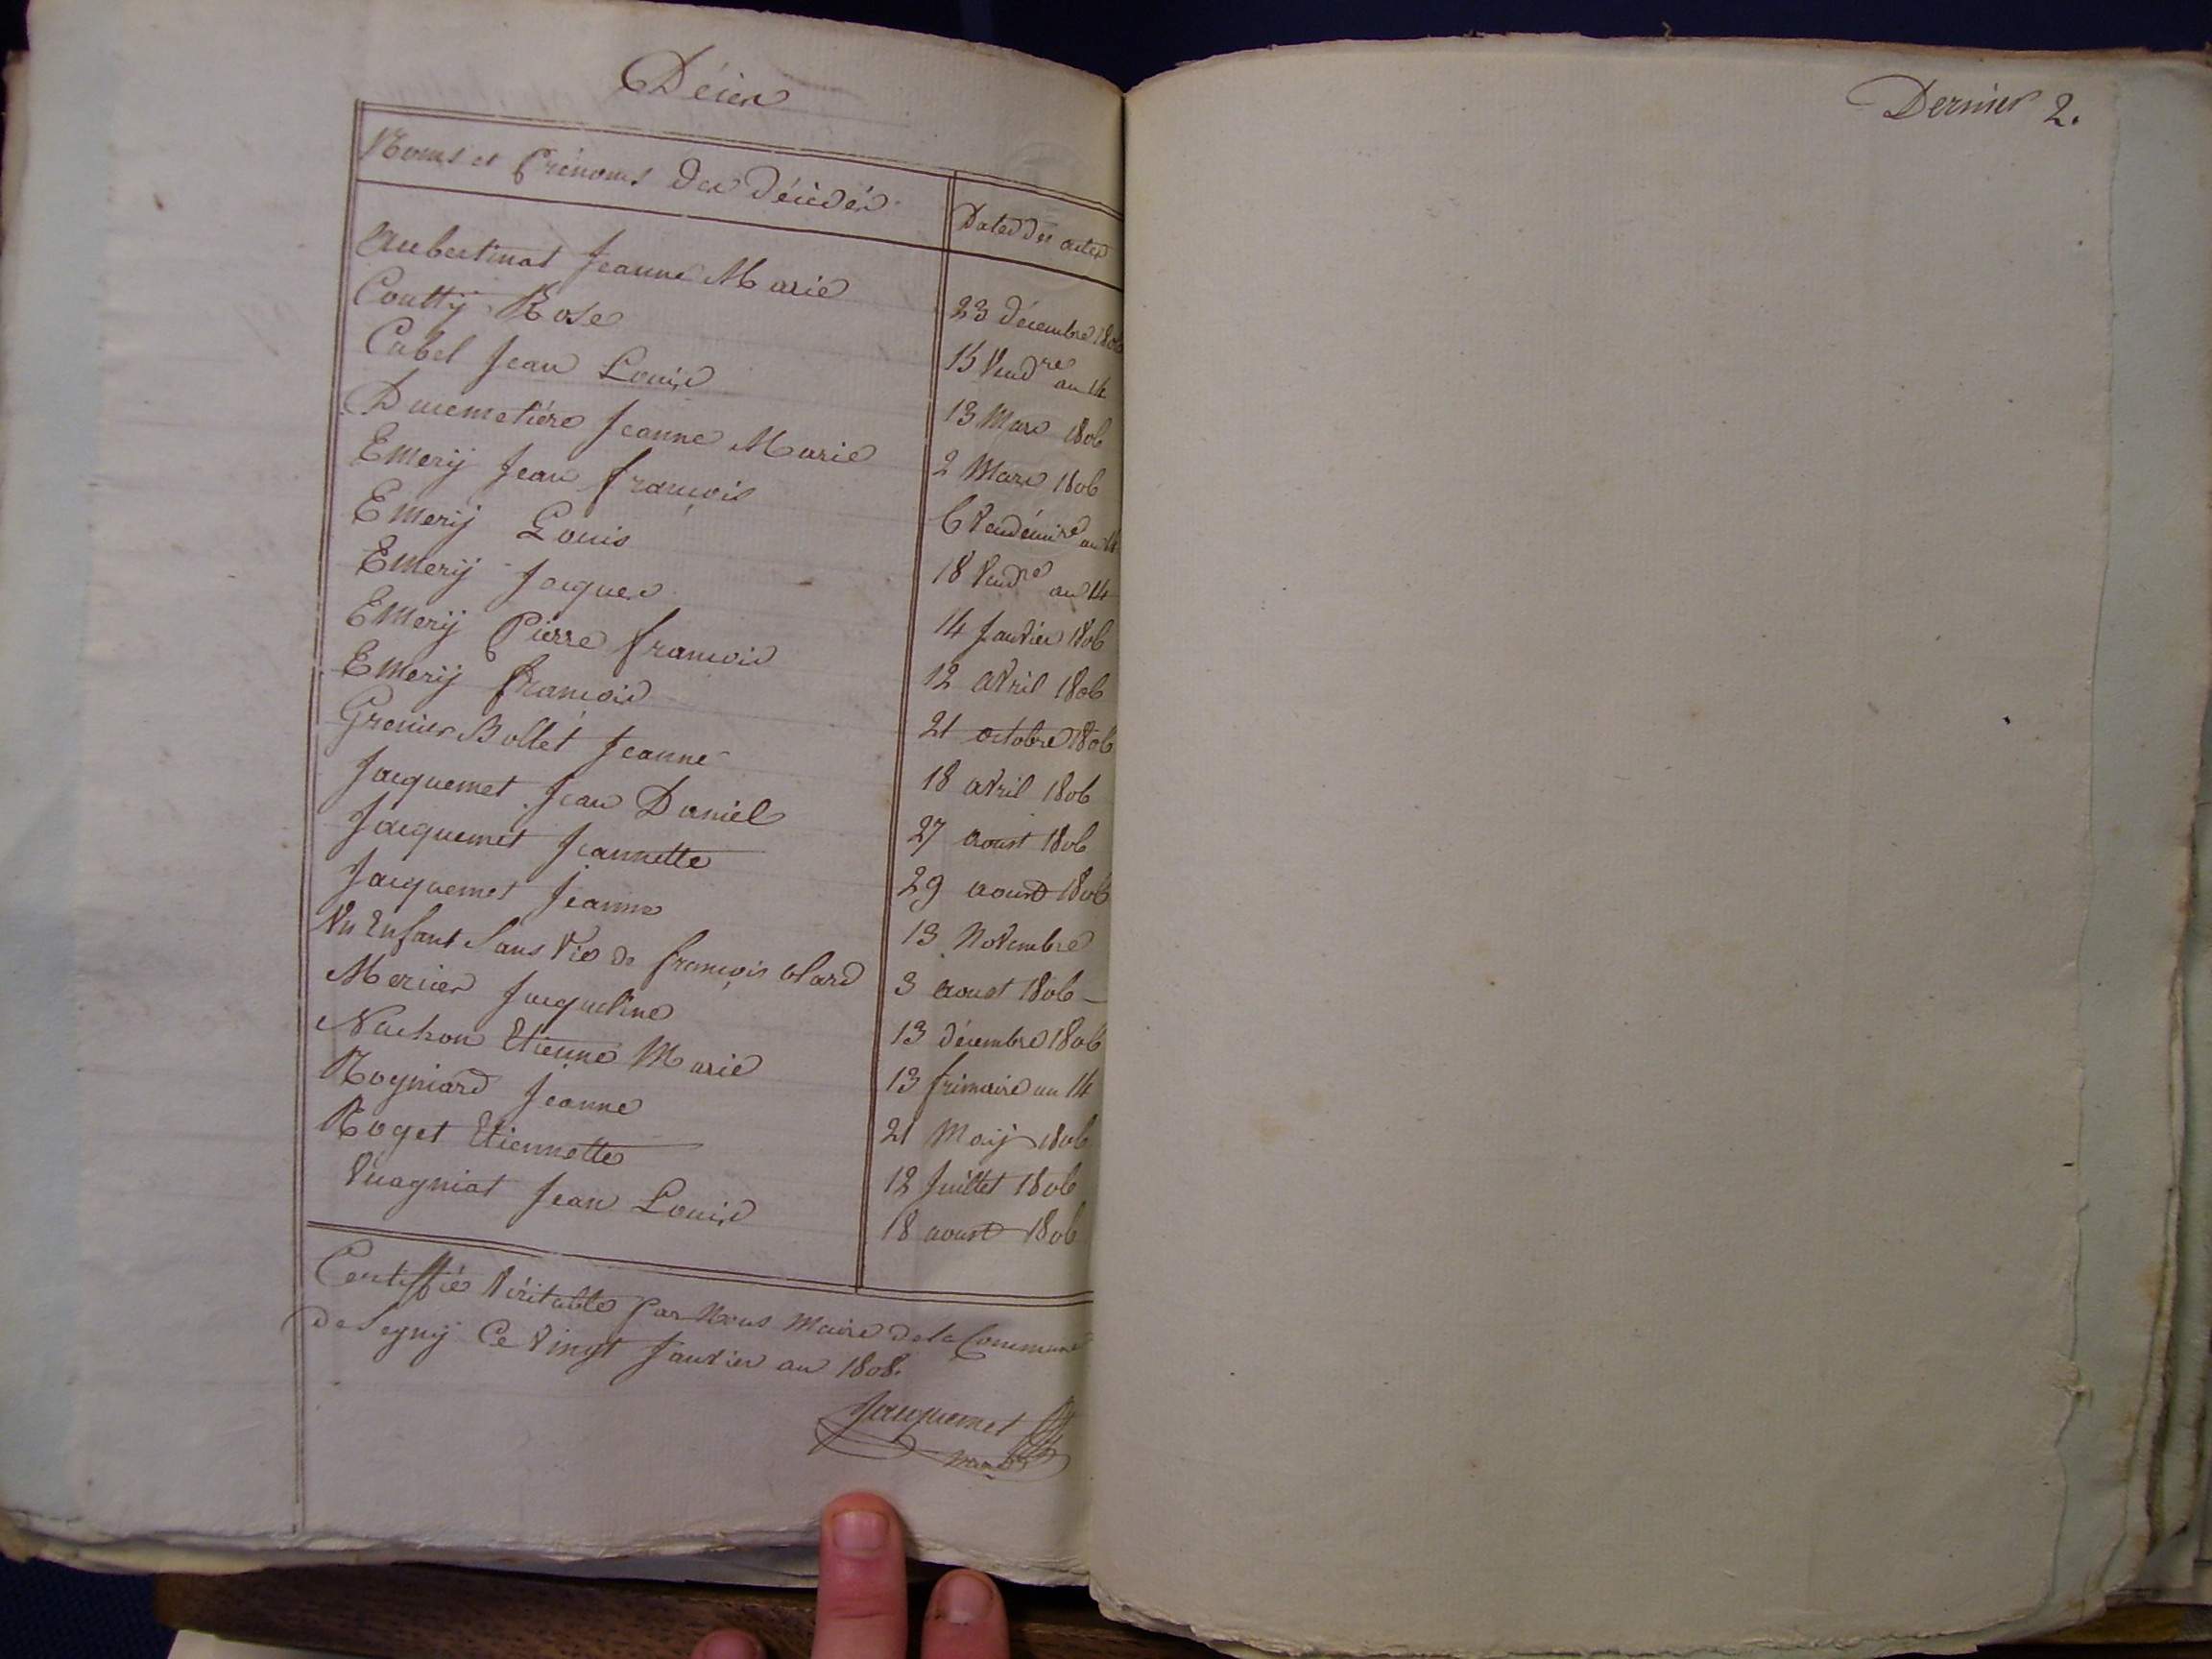 Décès
Noms et Prénoms des décédés Dates des actes
Aubertinat Jeanne Marie 23 décembre 1806
Couttÿ Rose 15 Vend.re an 14
Cabel Jean Louis 13 Mars 1806
Ducimetière Jeanne Marie 2 Mars 1806
Emerÿ Jean françois 6 Vendémire an 14
Emerÿ Louis 18 Vend.re an 14
Emerÿ Jacques 14 Janvier 1806
Emerÿ Pierre françois 12 avril 1806
Emerÿ françois 21 octobre 1806
Grenier Bollet Jeanne 18 avril 1806
Jacquemet Jean Daniel 27 aoust 1806
Jacquemet Jeannette 29 aoust 1806
Jacquemet Jeanne 13 Novembre
Un Enfant Sans Vie de françois 3 aoust 1806
Mercier Jacqueline 13 décembre 1806
Nachon Etienne Marie 13 frimaire an 14
Rogniard Jeanne 21 Maÿ 1806
Roget Etiennette 12 Juillet 1806
Vuagniat Jean Louis 18 aoust 1806
Certiffié Véritable Par Nous Maire de la Commune
de Segnÿ Ce Vingt Janvier an 1808.
Jacquemet
maire
Dernier 2.